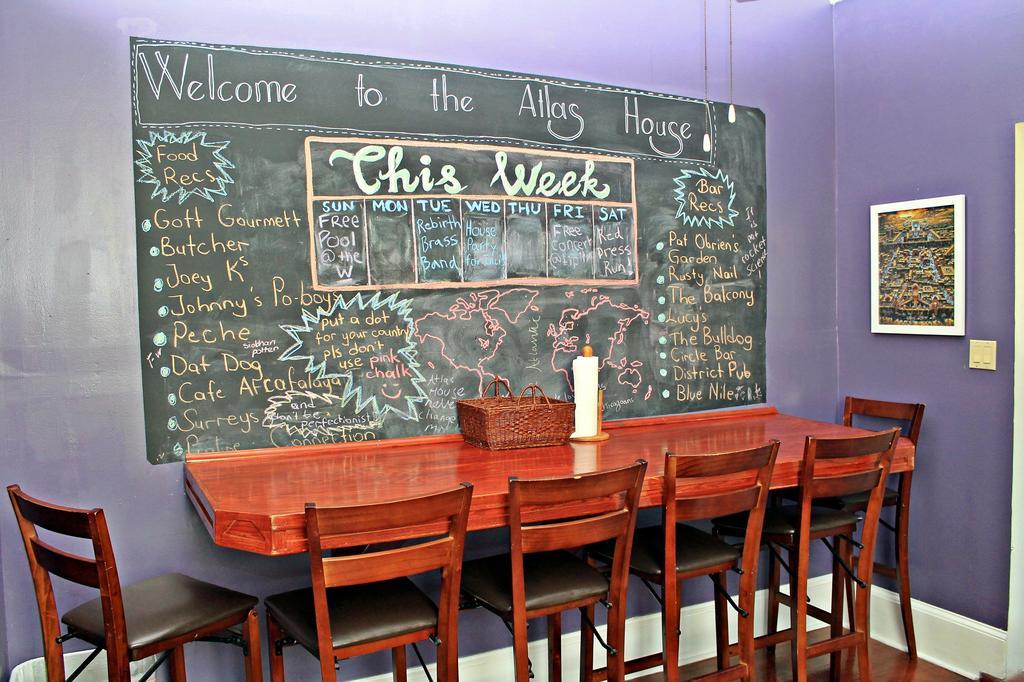 Welcome to the Atlas House
Food
Recs
Gott Gourmett
Butcher
Joey K's
Johnny's Po-boys
Peche
Dat Dog
Cafe Arcafalaya
Surreys
Connection
This Week
SUN MON TUE WED THU FRI SAT
Free
Pool
@ the
W
Rebirth
Brass
Band
House
Party
Free
Concert
Red
Dress
Run!
put a dot
for your country
pls don't
use pink
chalk
and
don't be
perfectionist
Atlanta
Atlas
House
Bar
Recs
It
is not
rocket
science
Pat Obriens
Garden
Rusty Nail
The Balcony
Lucy's
The Bulldog
Circle Bar
District Pub
Blue Nile